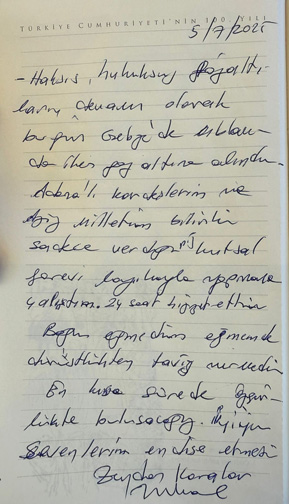 TÜRKİYE CUMHURİYETİ'NİN 100. YILI
5/7/2025
- Haksız, hukuksuz gözaltı-
ların devamı olarak
bugün Gebze'de
da ben göz altına alındım.
Adana'lı kardeşlerim ve
aziz milletim bilsinki
sadece verdiğiniz kutsal
görevi layıkıyla yapmaya
çalıştım. 24 saat hizmet ettim
Boyun eğmedim eğmem de
dürüstlükten taviz vermedim
En kısa sürede özgür-
lükte buluşacağız. İyiyim
Sevenlerim endişe etmesin
Zeydan Karalar